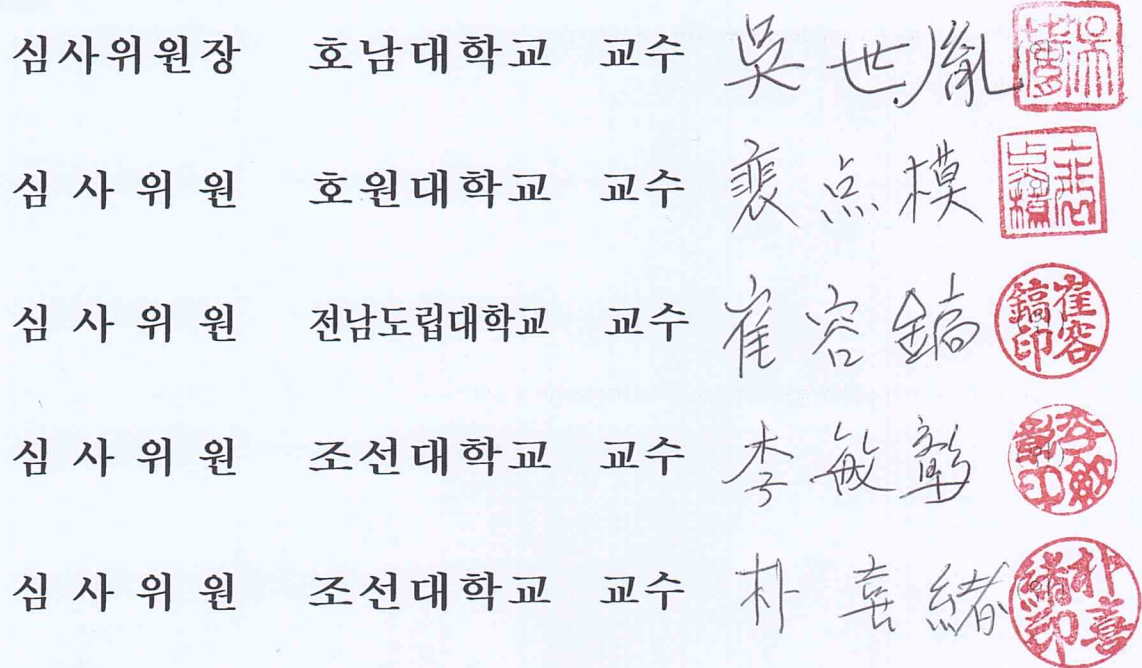 심사위원장 호남대학교 교수 吳世胤
심사위원 호원대학교 교수 裵点模
심사위원 전남도립대학교 교수 崔容鎬 崔容鎬印
심사위원 조선대학교 교수 李敏彰
심사위원 조선대학교 교수 朴喜緖 朴喜緖印